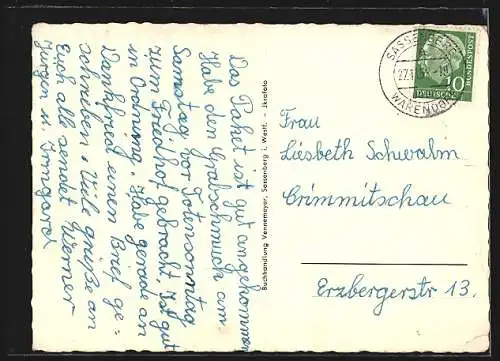 Das Paket ist gut angekommen
Habe den Grabschmuck am
Samstag vor Totensonntag
zum Friedhof gebracht. Ist gut
in Ordnung. Habe gerade an
Dankfried einen Brief ge=
schrieben. Viele grüße an
Euch alle sendet Werner
Jürgen u. Irmgard
Buchhandlung Vennemeyer, Sassenberg i. Westf. – Skafoto
SASSENBERG
27.11
WARENDORF
DEUTSCHE
BUNDESPOST
10
Frau
Liesbeth Schwalm
Crimmitschau
Erzbergerstr 13.